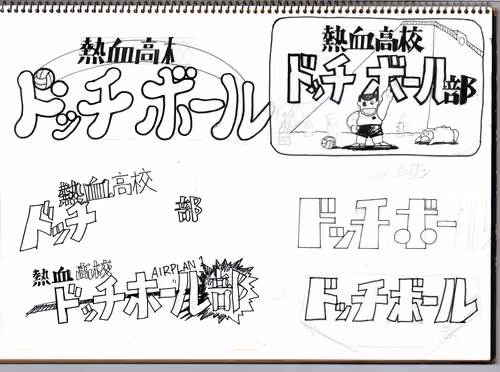 熱血高校
ドッチボール
熱血高校
ドッチボール部
熱血高校
ドッチ
部
熱血高校
AIRPLAN
ドッチボール部
ドッチボー
ドッチボール